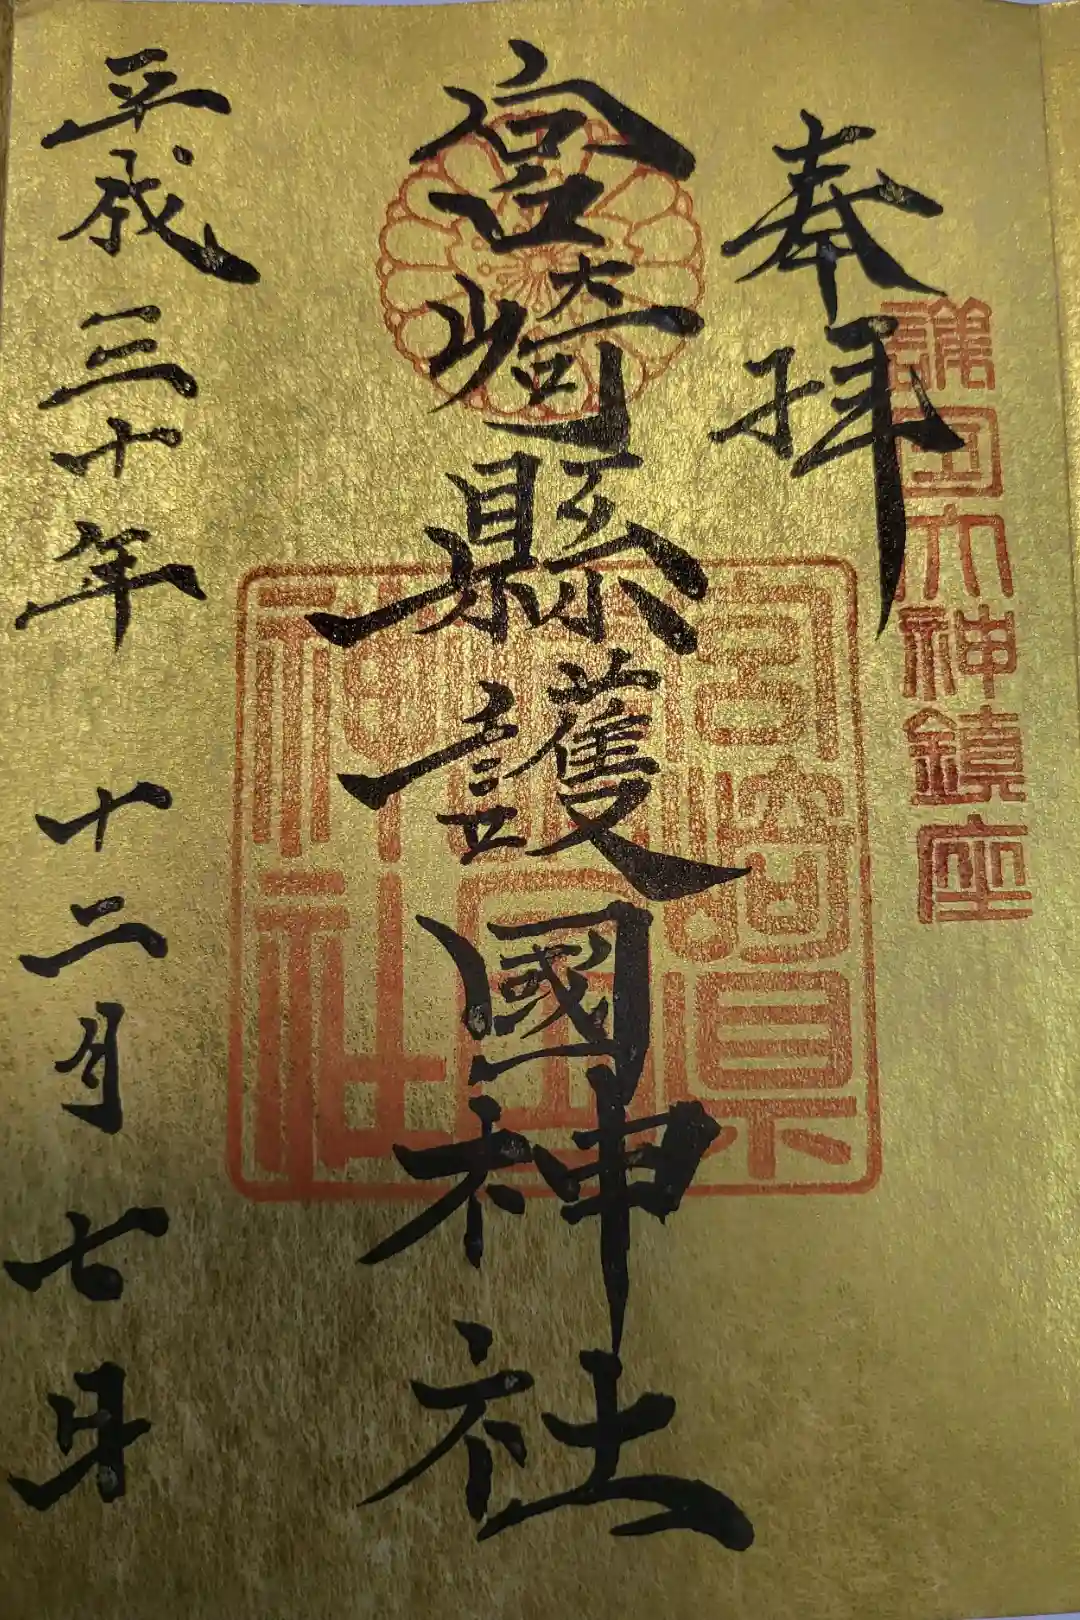 護国大神鎮座
奉拝
宮崎縣護國神社
宮崎県
護国
神社
平成三十年 十二月 七日